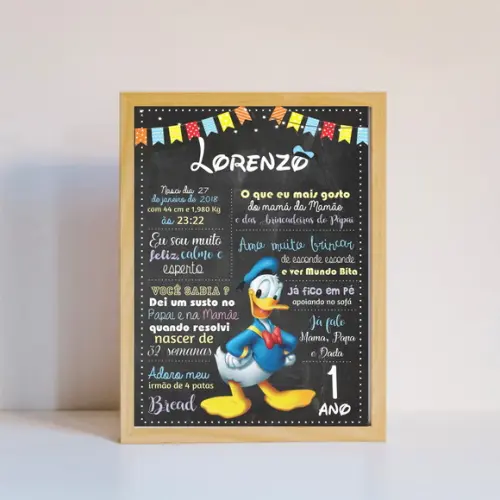 LORENZO
Nasci dia 27
de janeiro de 2018
com 44 cm e 1,980 Kg
às 23:22
Eu sou muito
feliz, calmo e
esperto
VOCÊ SABIA ?
Dei um susto no
Papai e na Mamãe
quando resolvi
nascer de
32 semanas
Adoro meu
irmão de 4 patas
Bread
O que eu mais gosto
do mamá da Mamãe
e das brincadeiras do Papai
Amo muito brincar
de esconde esconde
e ver Mundo Bita
Já fico em Pé
apoiando no sofá
Já falo
Mama, Papa
e Dada
1
ANO